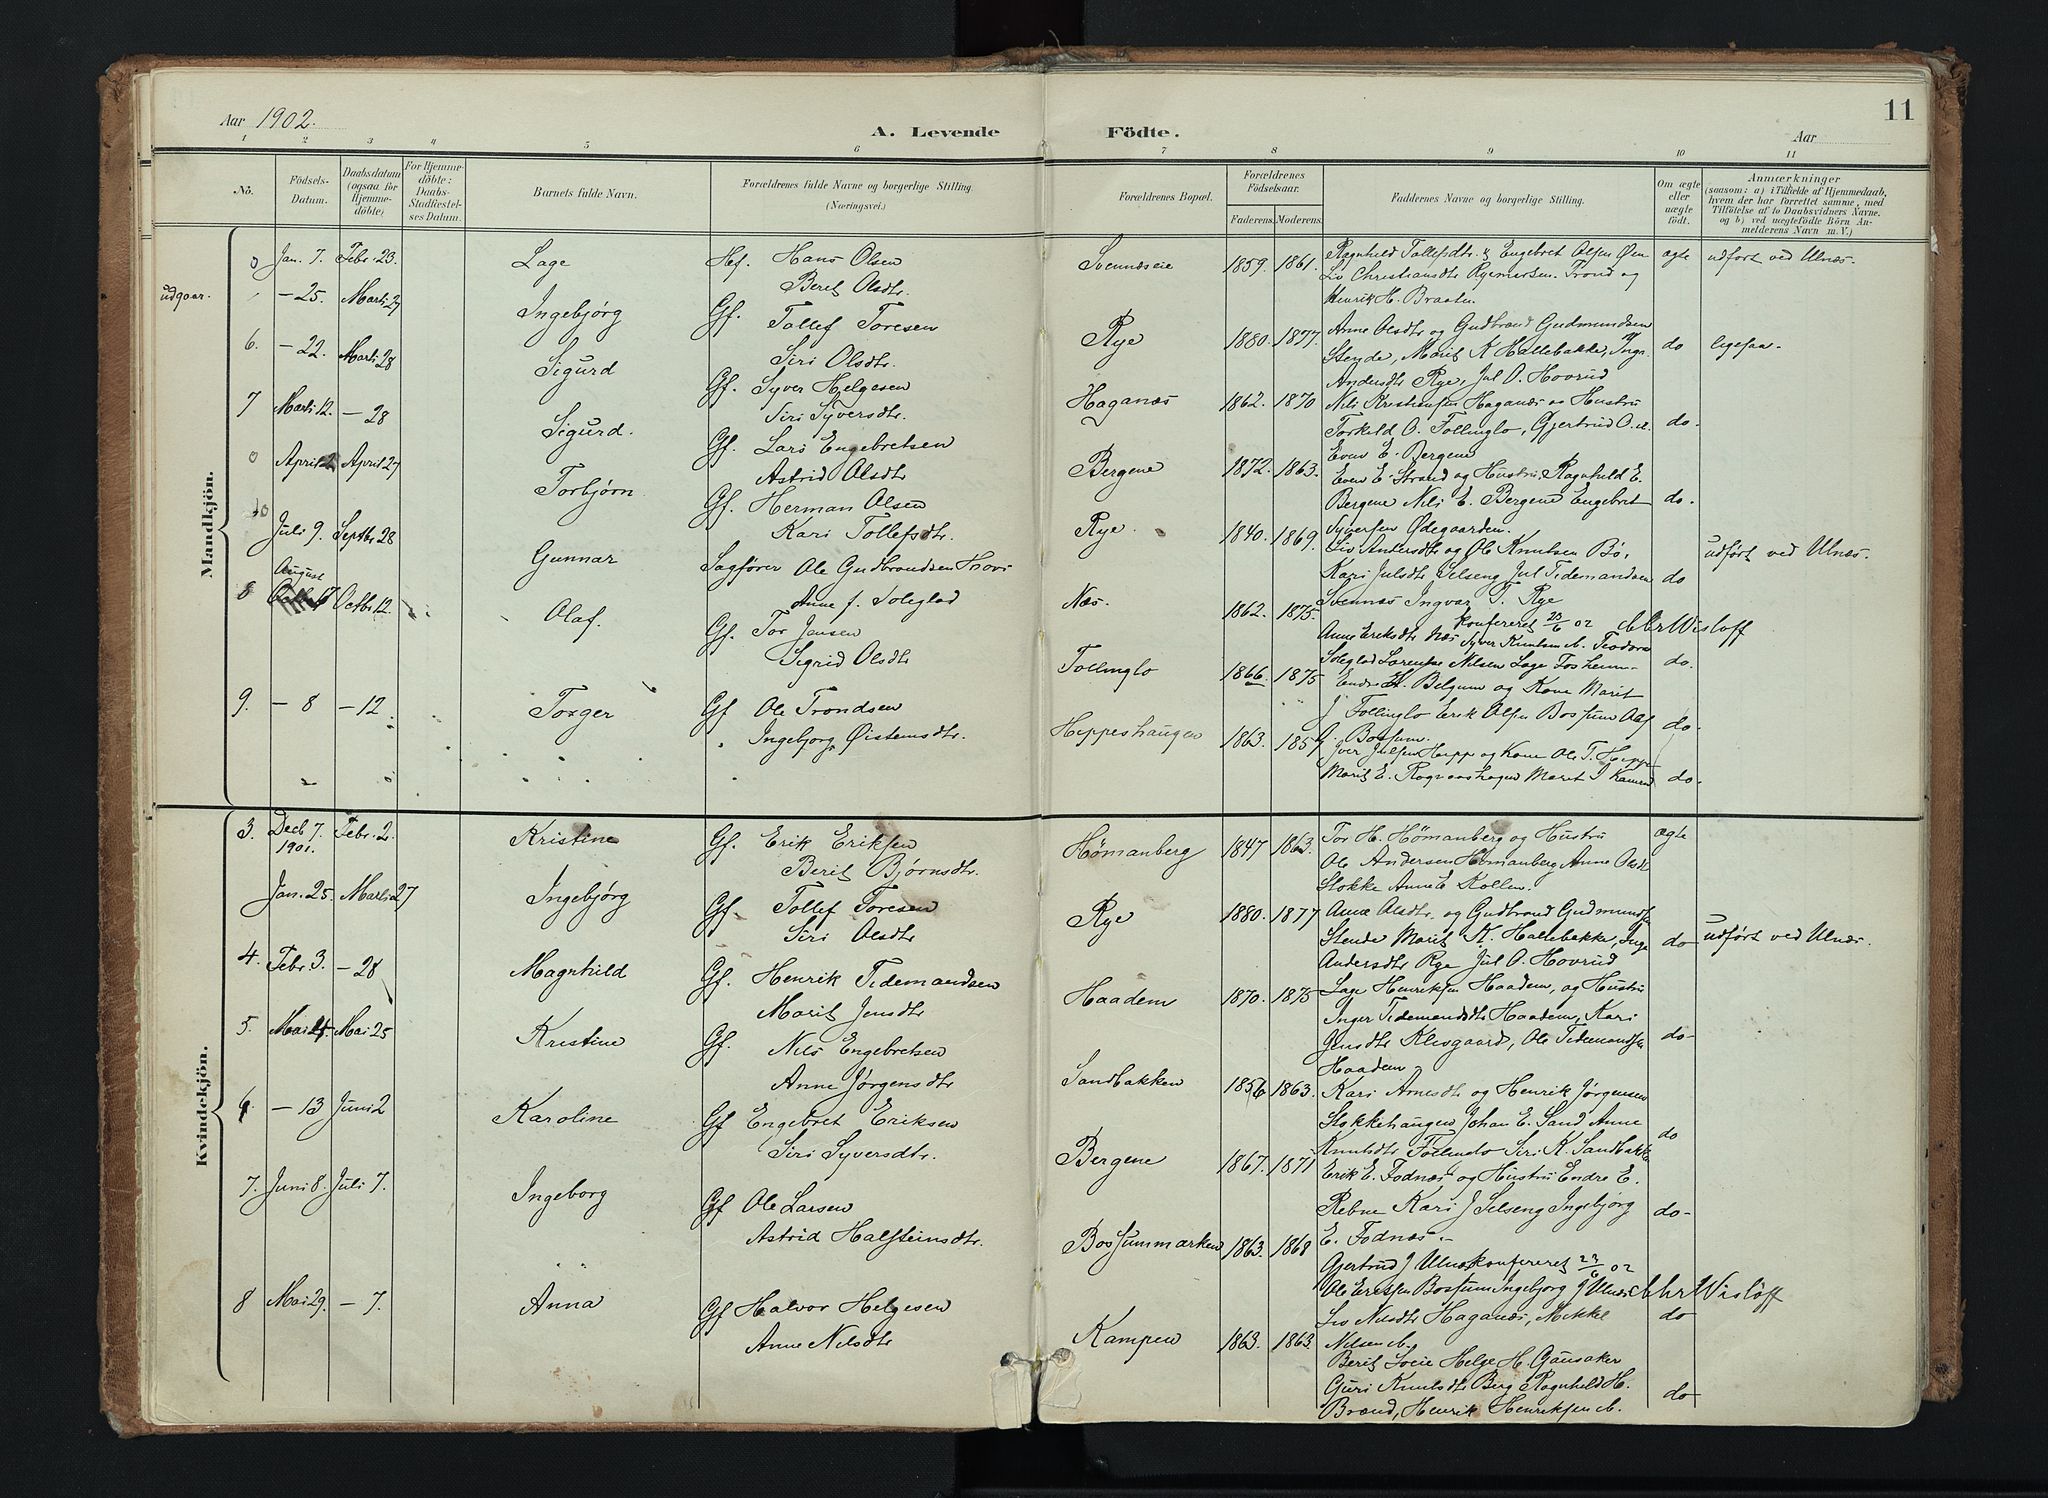 Aar 1902.
A. Levende Födte.
Aar
11
1 2 3 4 5 6 7 8 9 10 11
No.
Födsels-Datum.
Daabsdatum (ogsaa for Hjemmedöbte)
For Hjemmedöbte: Daabs-Stadfestelses Datum.
Barnets fulde Navn.
Forældrenes fulde Navne og borgerlige Stilling. (Næringsvei.)
Forældrenes Bopæl.
Forældrenes Födselsaar.
Faderens. Moderens.
Faddernes Navne og borgerlige Stilling.
Om ægte eller uægte födt.
Anmærkninger (saasom: a) i Tilfælde af Hjemmedaab, hvem der har forrettet samme, med Tilföielse af to Daabsvidners Navne. og b) ved uægtefödte Börn Anmelderens Navn m. V.)
Mandkjön.
0 Jan. 7. Febr. 23. Lage Hf. Hans Olsen
Berit Olsdtr. Svennæseie 1859. 1861. Ragnhild Tollefsdtr. & Engebret Olsen Øen
Liv Christiansdtr Ryemarken. Trond og
Henrik H. Braaten. ægte udført ved Ulnæs.
udgaar. — 25. Marts 27 Ingebjørg Gf. Tollef Toresen
Siri Olsdtr. Rye 1880. 1877. Anne Olsdtr og Gudbrand Gudmundsen
Stende, Marit K Hallebakke, Inga
Andersdtr Rye, Jul O. Hovrud do ligesaa.
6. — 22. Marts 28 Sigurd Gf. Syver Helgesen
Siri Syversdtr. Haganæs 1862. 1870 Nils Kristiansen Haganæs og Hustru
Torkild O. Follinglo, Gjertrud O. d.
Even E. Bergene do.
7 Marts 12. — 28 Sigurd. Gf. Lars Engebretsen
Astrid Olsdtr Bergene 1872. 1863. Even E. Strand og Hustru Ragnhild E.
Bergene Nils E. Bergene Engebret
Syversen Ødegaarden. do.
0 April 2 April 27 Torbjørn Gf. Herman Olsen
Kari Tollefsdtr. Rye. 1840. 1869. Liv Andersdtr og Ole Knutsen Bø,
Kari Julsdtr Selseng Jul Tidemandsen
Svennæs Ingvar T. Rye do udført ved Ulnæs.
Juli 9. Septbr 28 Gunnar Sagfører Ole Gudbrandsen Hovi
Anne f. Soleglad Næs. 1862. 1875. Konfereret 23/6 02 Chr Wisløff
Anne Eriksdtr Næs Syver Knutsen . Teodora
Soleglad Lorentse Nilsen Lage Fosheim do.
8 August 17 Octbr 12. Olaf. Gf. Tor Jensen
Sigrid Olsdtr Follinglo 1866. 1875 Endre K. Belgum og Kone Marit
J Follinglo Erik Olsen Bossum Olaf
Bossum. do
9. — 8 — 12 Torger Gf Ole Trondsen
Ingebjørg Østensdtr. Heppeshaugen 1863. 1859 Iver Julsen Hepp og Kone Ole T. Hepp
Marit E. Rognaashagen Marit J do.
Kvindekjön.
3. Decb 7. 1901. Febr. 2. Kristine Gf. Erik Eriksen
Berit Bjørnsdtr. Hömanberg 1847 1863. Tor H. Hömanberg og Hustru
Ole Andersen Hömanberg Anne Olsdtr
Stokke Anne E Kollen. ægte
Jan. 25 Marts 27 Ingebjørg Gf. Tollef Toresen
Siri Olsdtr Rye 1880. 1877 Anne Olsdtr. og Gudbrand Gudmunds.
Stende Marit K. Hallebakke, Inga
Andersdtr Rye Jul O. Hovrud do udført ved Ulnæs.
4. Febr 3. — 28 Magnhild Gf. Henrik Tidemandsen
Marit Jensdtr Haadem 1870. 1875 Lage Henriksen Haadem, og Hustru
Inger Tidemandsdtr Haadem, Kari
Jensdtr Klisgaard, Ole Tidemandsen
Haadem do
5. Mai 4. Mai 25 Kristine Gf. Nils Engebretsen
Anne Jørgensdtr Sandbakken 1856 1863. Kari Arnesdtr og Henrik Jørgensen
Stokkehaugen Johan E. Sand Anne
Knutsdtr Follinglo Siri K. Sandbakke do
6. — 13 Juni 2 Karoline Gf Engebret Eriksen
Siri Syversdtr. Bergene 1867. 1871 Erik E. Fodnæs og Hustru Endre E.
Rebne Kari J Selseng Ingebjørg
E. Fodnæs. do
7. Juni 8. Juli 7. Ingeborg Gf Ole Larsen
Astrid Halsteinsdtr. Bossummarken 1863. 1868 Gjertrud J Ulnæs Konfereret 23/6 02
Ole Eriksen Bossum Ingebjørg J Ulnæs Chr Wisløff
Liv Nilsdtr Haganæs, Mikkel
Nilsen . do
8 Mai 29. — 7. Anna Gf Halvor Helgesen
Anne Nilsdtr Kampen 1863. 1863. Berit Sveie Helge H. Gausaker
Guri Knutsdtr Berg Ragnhild H.
Brænd, Henrik Henriksen . do